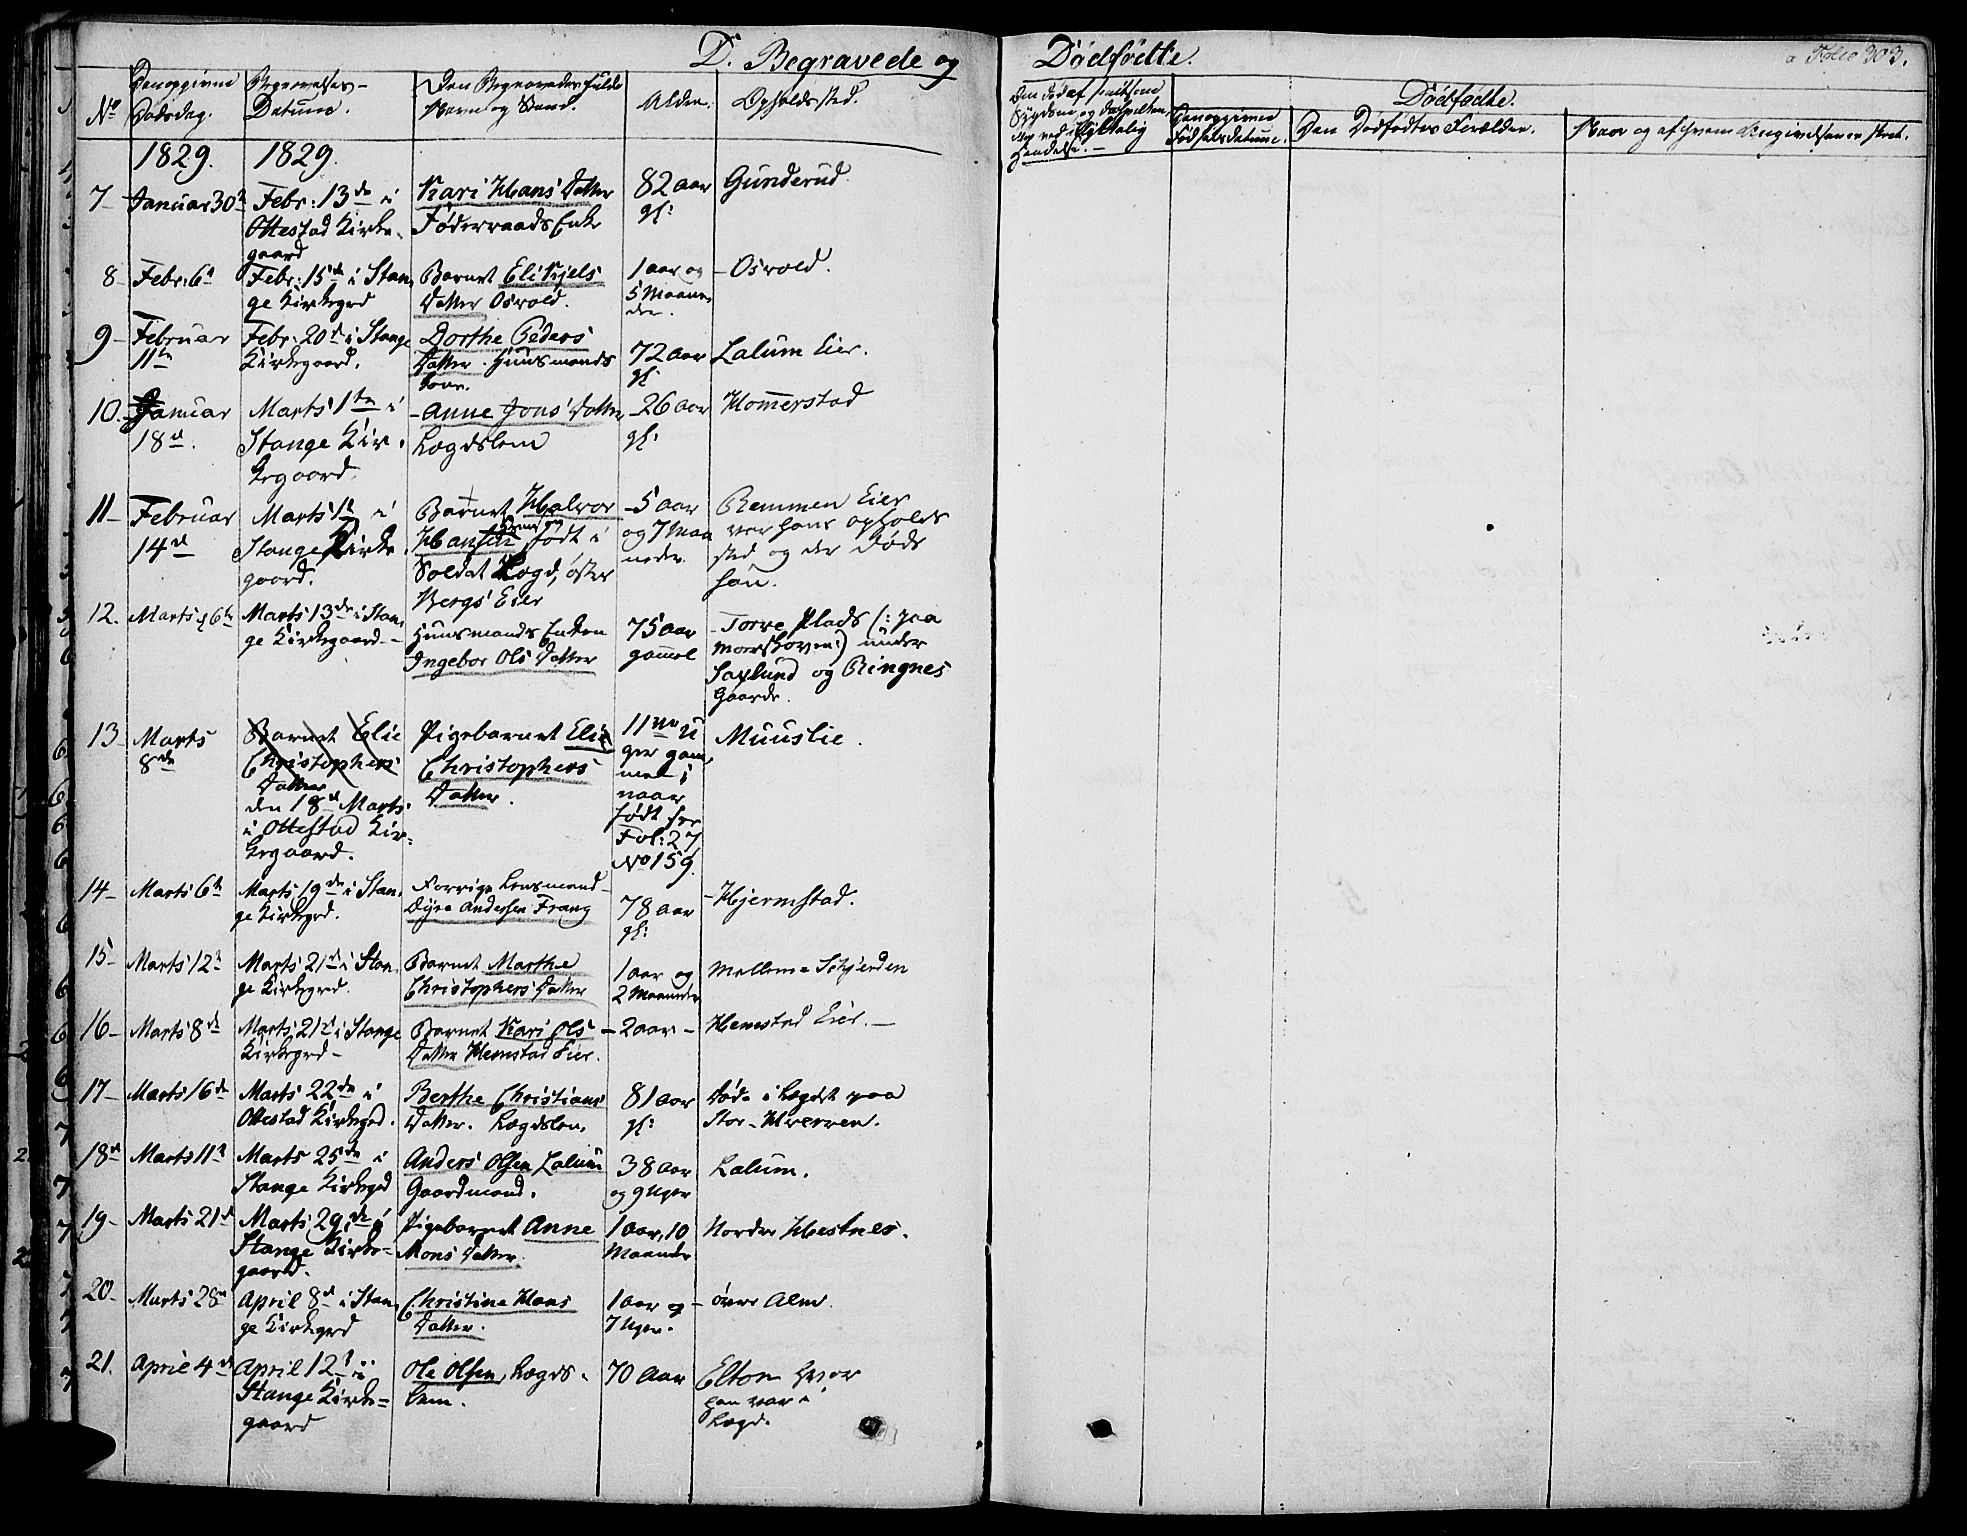 D. Begravede og Dødfødte.
a Folio 303.
No
Den opgivne Dødsdag.
Begravelses-
Datum.
Den Begravedes fulde
Navn og Stand.
Alder.
Opholdssted.
Dødfødte.
Den Dødfødtes Forældre.
Naar og af hvem Angivelsen er skeet.
1829. 1829.
7- Januar 30
Febr: 13de i
Ottestad Kirke-
gaard
Kari Hans Datter
Føderraads Enke
82 aar
gl:
Gunderud.
8- Febr: 6
Febr: 15de i Stan-
ge Kirkegrd
Barnet Eli Kjels
Datter Osvold.
1 aar og
5 Maane-
der.
- Osvold.
9- Februar
11te
Febr: 20de i Stange
Kirkegaard.
Dorthe Peders
Datter. Huusmands
72 aar
gl:
Lalum Eier.
10. Januar
18de.
Marts 1ste i
Stange Kir-
kegaard.
- Anne Jons Datter
Lægdslem
- 26 aar
gl:
Homerstad
11- Februar
14de
Marts 1 i
Stange Kirke-
gaard.
Barnet Halvor
Hansen født i
Soldat Lægd, øster
Bergs Eier
- 5 aar
og 7 Maa
neder.
Remmen Eier
var hans opholds
sted og der døde
han.
12. Marts 6te
Marts 13de i Stan-
ge Kirkegaard-
Huusmands Enken
Ingebor Ols Datter
75 aar
gammel
- Torve Plads (: paa
under
Saxlund og Ringnes
Gaarde.
13- Marts
8de
Barnet Elie
Christophers
Datter
den 18de Marts
i Ottestad Kir-
kegaard.
Pigebarnet Elie
Christophers
Datter.
11 u
ger gam-
mel;
naar
født see
Fol: 27
No 159.
Muuslie.
14- Marts 6te
Marts 19de i Stan-
ge Kirkegrd.
Forrige Lensmand-
Dyre Andersen Frang
78 aar
gl:
- Hjermstad.
15- Marts 12
Marts 21de i Stan-
ge Kirkegrd.
Barnet Marthe
Christophers Datter
1 aar og
2 Maaneder
Mellem Schjerden
16- Marts 8de
Marts 21de i Stange
Kirkegrd-
Barnet Kari Ols
Datter Hemstad Eier.
- 2 aar -
Hemstad Eier. -
17- Marts 16de
Marts 22de i
Ottestad Kirkegrd.
Berthe Christians
Datter. Lægdslem.
81 aar
gl:
døde i Lægdet paa
Stor-Hverven.
18de Marts 11
Marts 25de i
Stange Kirkegrd
Anders Olsen Lalum
Gaardmand.
38 aar
og 9 Uger
Lalum.
19- Marts 21de
Marts 29de i
Stange Kirke-
gaard.
Pigebarnet Anne
Mons Datter.
1 aar, 10
Maaneder
Nordre Hestnes.
20- Marts 28de
April 8de i Stan-
ge Kirkegrd
Christine Hans
Datter.
1 aar og
7 Uger.
- övre Alm.
21. April 4de
April 12 i
Stange Kirke-
gaard
Ole Olsen, Lægds-
lem.
70 Aar
Elton hvor
han var i
Lægd.